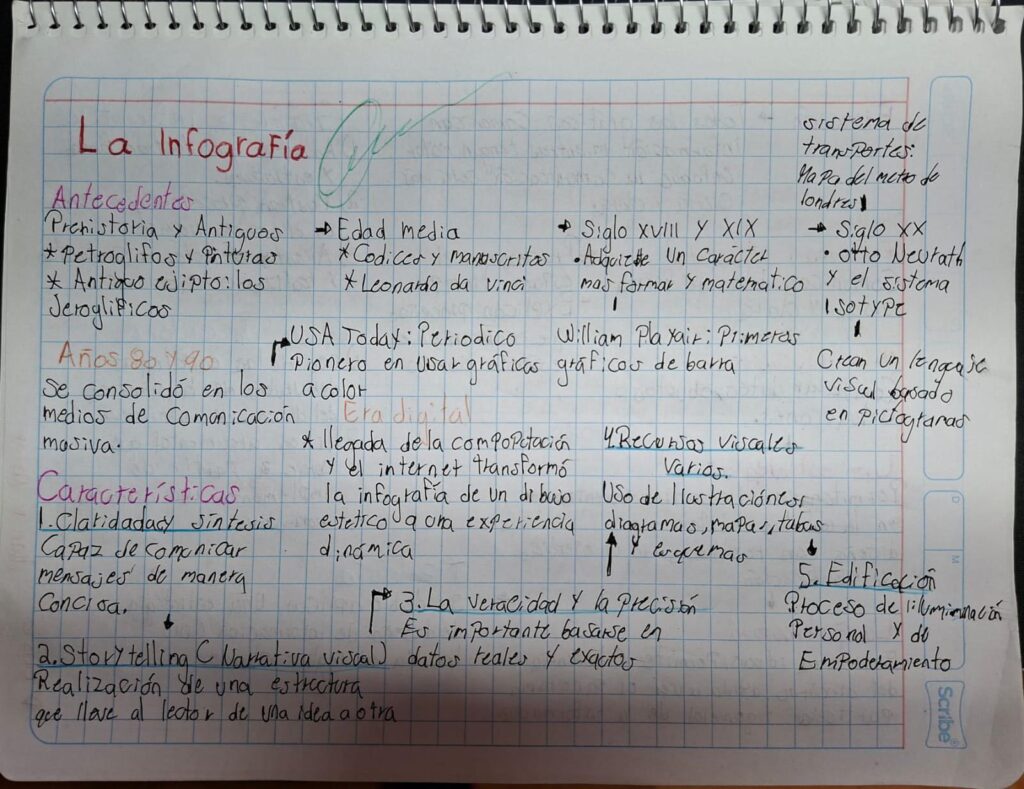 La Infografía
Antecedentes
Prehistoria y Antiguos
* Petroglifos y Pinturas
* Antiguo ejipto: los
Jeroglificos
→ Edad media
* Codices y manuscritos
* Leonardo da vinci
→ Siglo XVIII Y XIX
• Adquiere Un Carácter
mas formar y matematico
William Playair: Primeras
gráficos de barra
sistema de
transportes:
Mapa del metro de
londres
→ Siglo XX
• otto Neurath
y el sistema
ISOtYPE
Crean un lenguaje
visual basado
en pictogramas
Años 80 y 90
se consolidó en los
medios de comonicación
masiva.
USA Today: Periodico
Pionero en usar gráficas
a color
Era digital
* llegada de la compopotación
y el internet transformó
la infografía de un dibujo
estetico a una experiencia
dinámica
Características
1. Claridaday síntesis
Capaz de comunicar
mensajes de manera
Concisa.
2. Storytelling ( Narrativa viscal)
Realización de una estroctura
que lleve al lector de una idea a otra
3. La veracidad y la Precisión
Es importante basarse en
datos reales y exactos
4. Recursos viscales
varios.
Uso de Ilustraciónes,
diagramas, mapas, tabas
y esquemas
5. Edificación
Proceso de iluminación
Personal y de
Empoderamiento
Scribe®